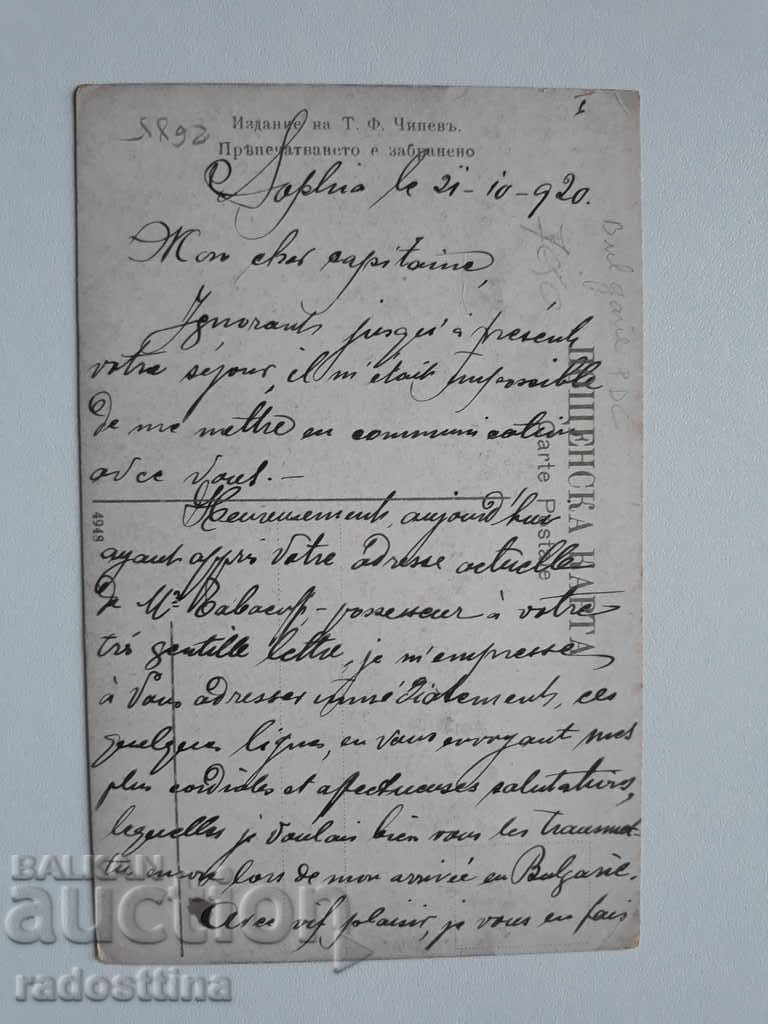 5892
I
Издание на Т. Ф. Чипевъ.
Прѣпечатването е забранено
Sophia le 21-10-920.
Mon cher capitaine,
Ignorant jusqu'à présent
votre séjour, il m'était impossible
de me mettre en communication
avec vous. —
Heureusement, aujourd'hui
ayant appris votre adresse actuelle
de Mr - possesseur à votre
très gentille lettre, je m'empresse
à vous adresser immédiatement, ces
quelques lignes, en vous envoyant mes
plus cordiales et affectueuses salutations,
lesquelles je voulais bien vous les transmet-
tre encore lors de mon arrivée en Bulgarie.
Avec vif plaisir, je vous en fais
ПОЩЕНСКА КАРТА
Carte Postale
4948
Bulgarie PDC
BALKAN
auction
radosttina